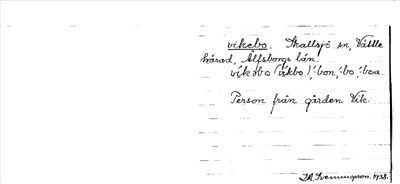 vikebo. Skallsjö sn, Vättle
härad, Älfsborgs län.
vikəbo (vikbo), ꞌbon, ꞌbo, ꞌboa.
Person från gården Vik.
1938.